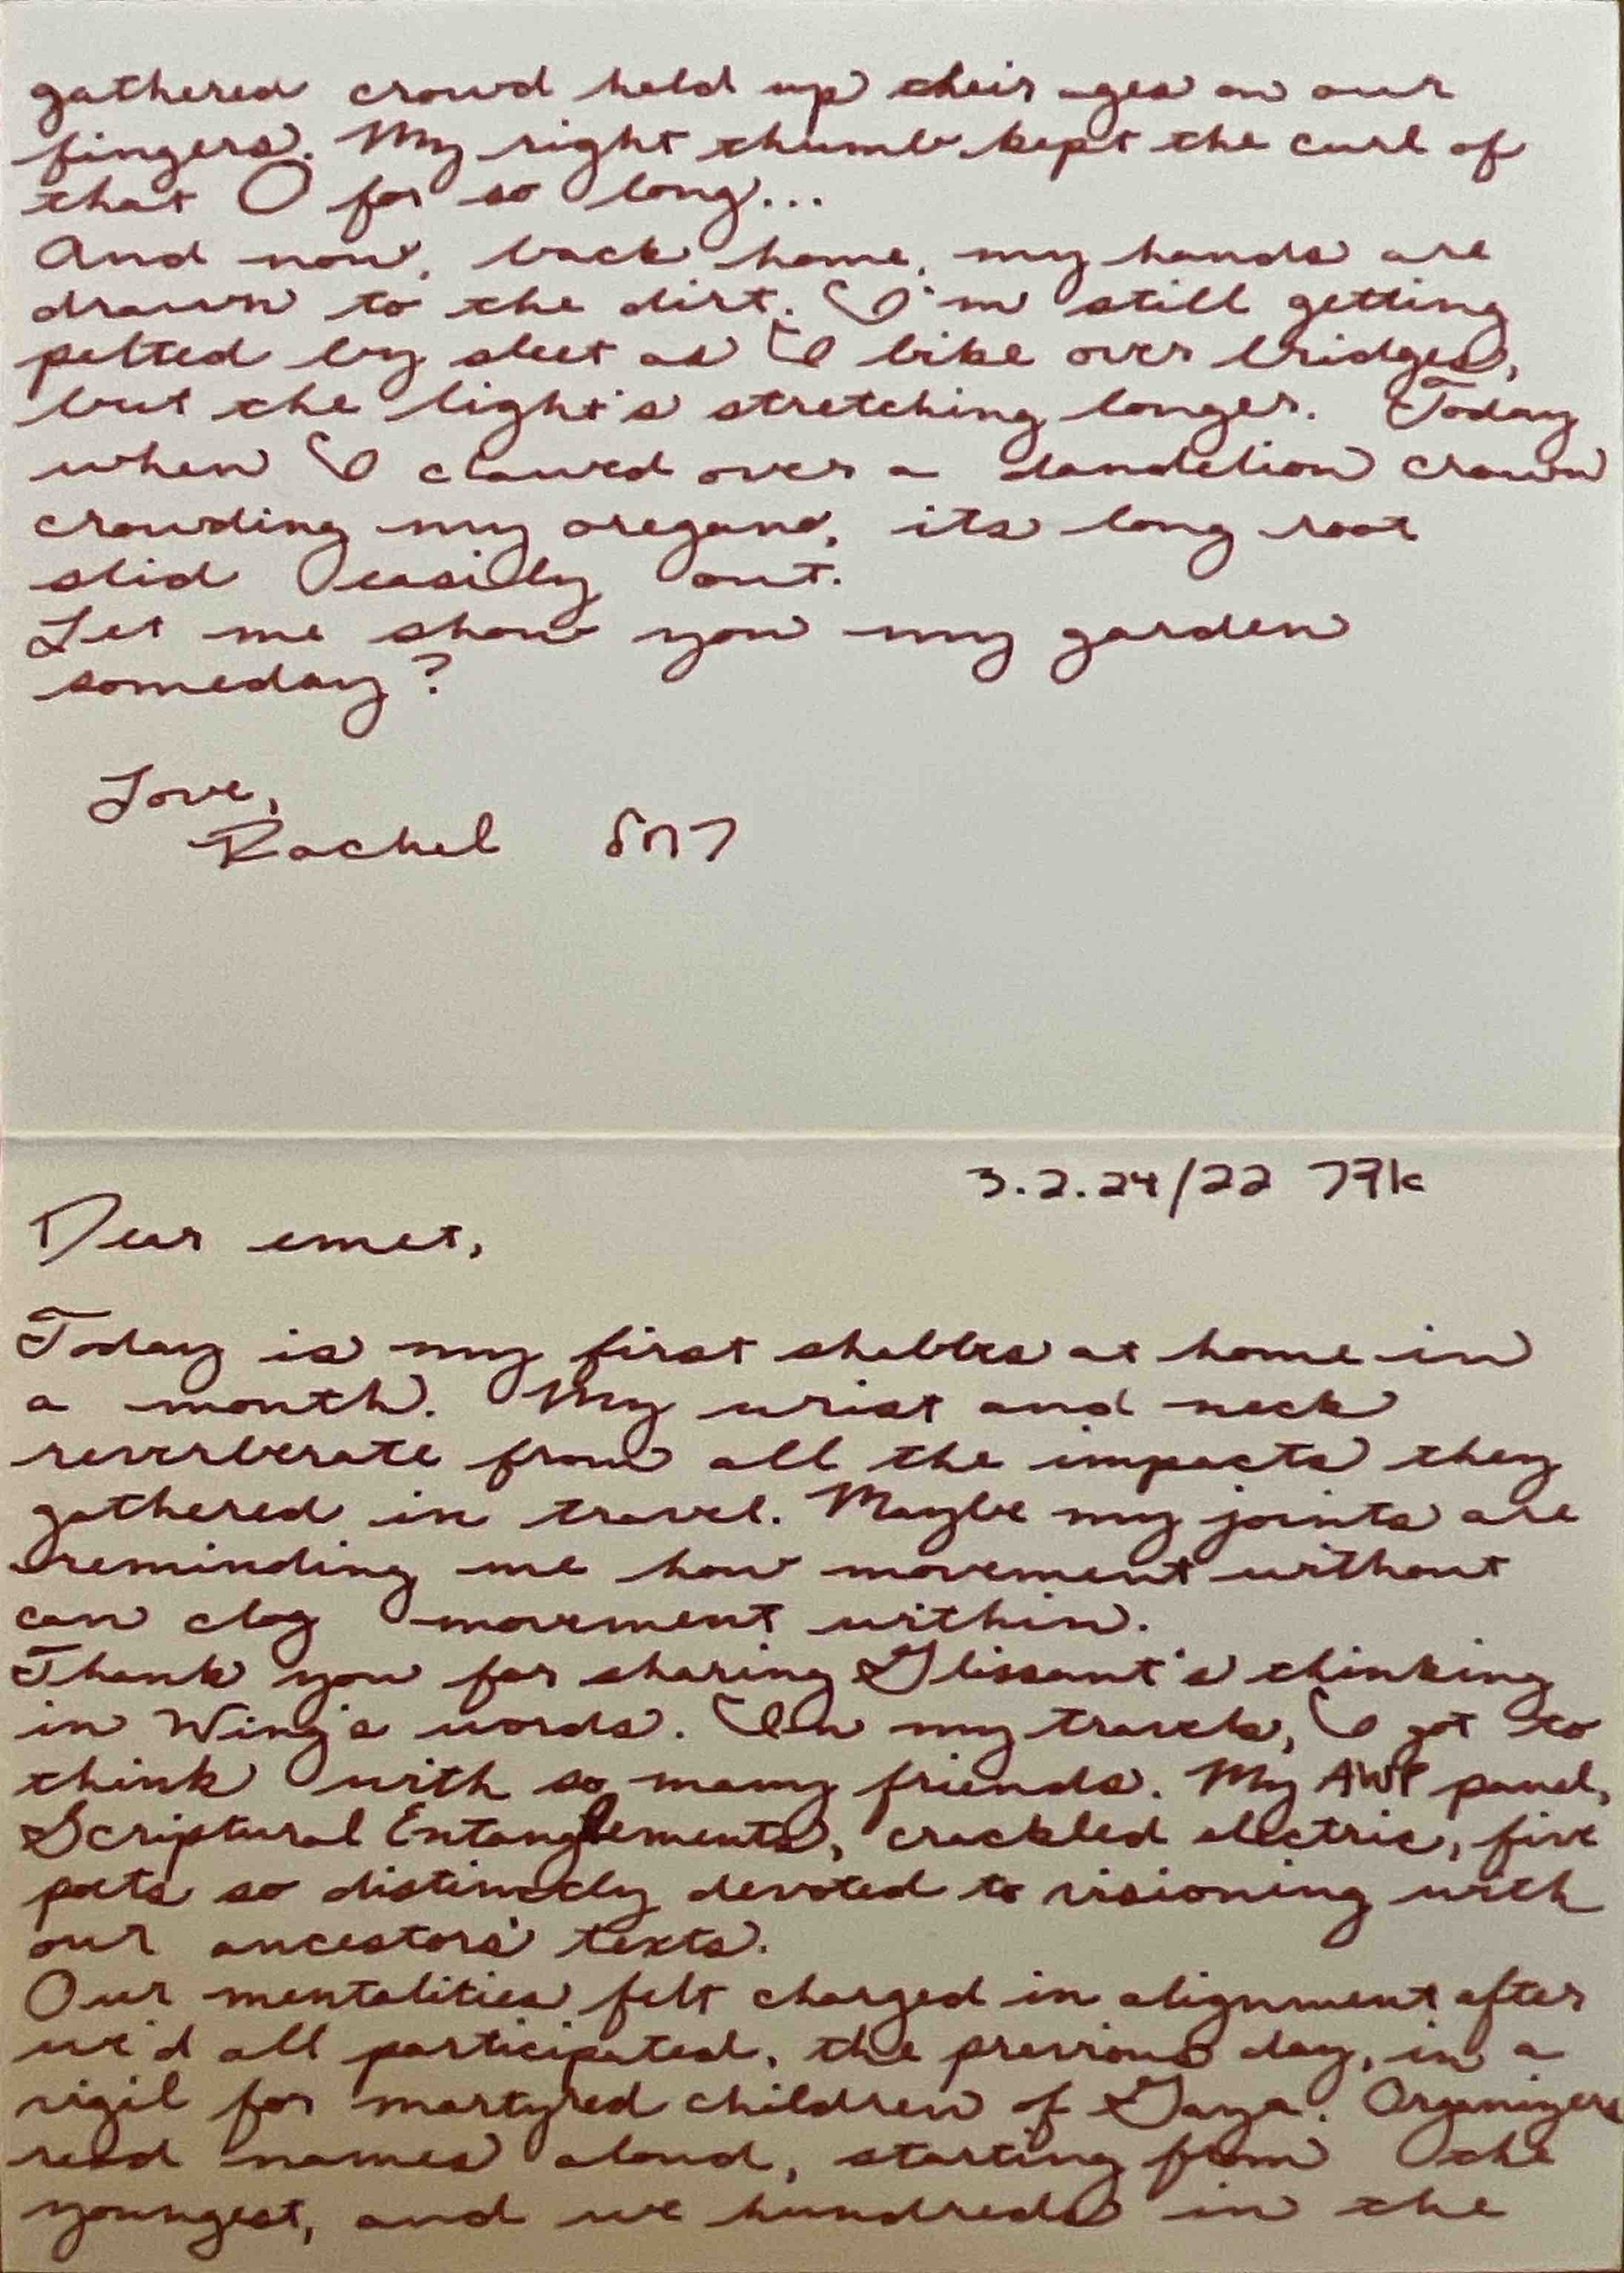 3.2.24/22 אדר
Dear emet,
Today is my first shabbes at home in
a month. My wrist and neck
reverberate from all the impacts they
gathered in travel. Maybe my joints are
reminding me how movement without
can clog movement within.
Thank you for sharing Glissant's thinking
in Wing's words. In my travels, I got to
think with so many friends. My AWP panel,
Scriptural Entanglements, crackled electric, five
poets so distinctly devoted to visioning with
our ancestors' texts.
Our mentalities felt charged in alignment after
we'd all participated, the previous day, in a
vigil for martyred children of Gaza. Organizers
read names aloud, starting from the
youngest, and we hundreds in the
gathered crowd held up their ages on our
fingers. My right thumb kept the curl of
that O for so long...
And now, back home, my hands are
drawn to the dirt. I'm still getting
pelted by sleet as I bike over bridges,
but the light's stretching longer. Today
when I clawed over a dandelion crown
crowding my oregano, its long root
slid easily out.
Let me show you my garden
someday?
Love,
Rachel רחל